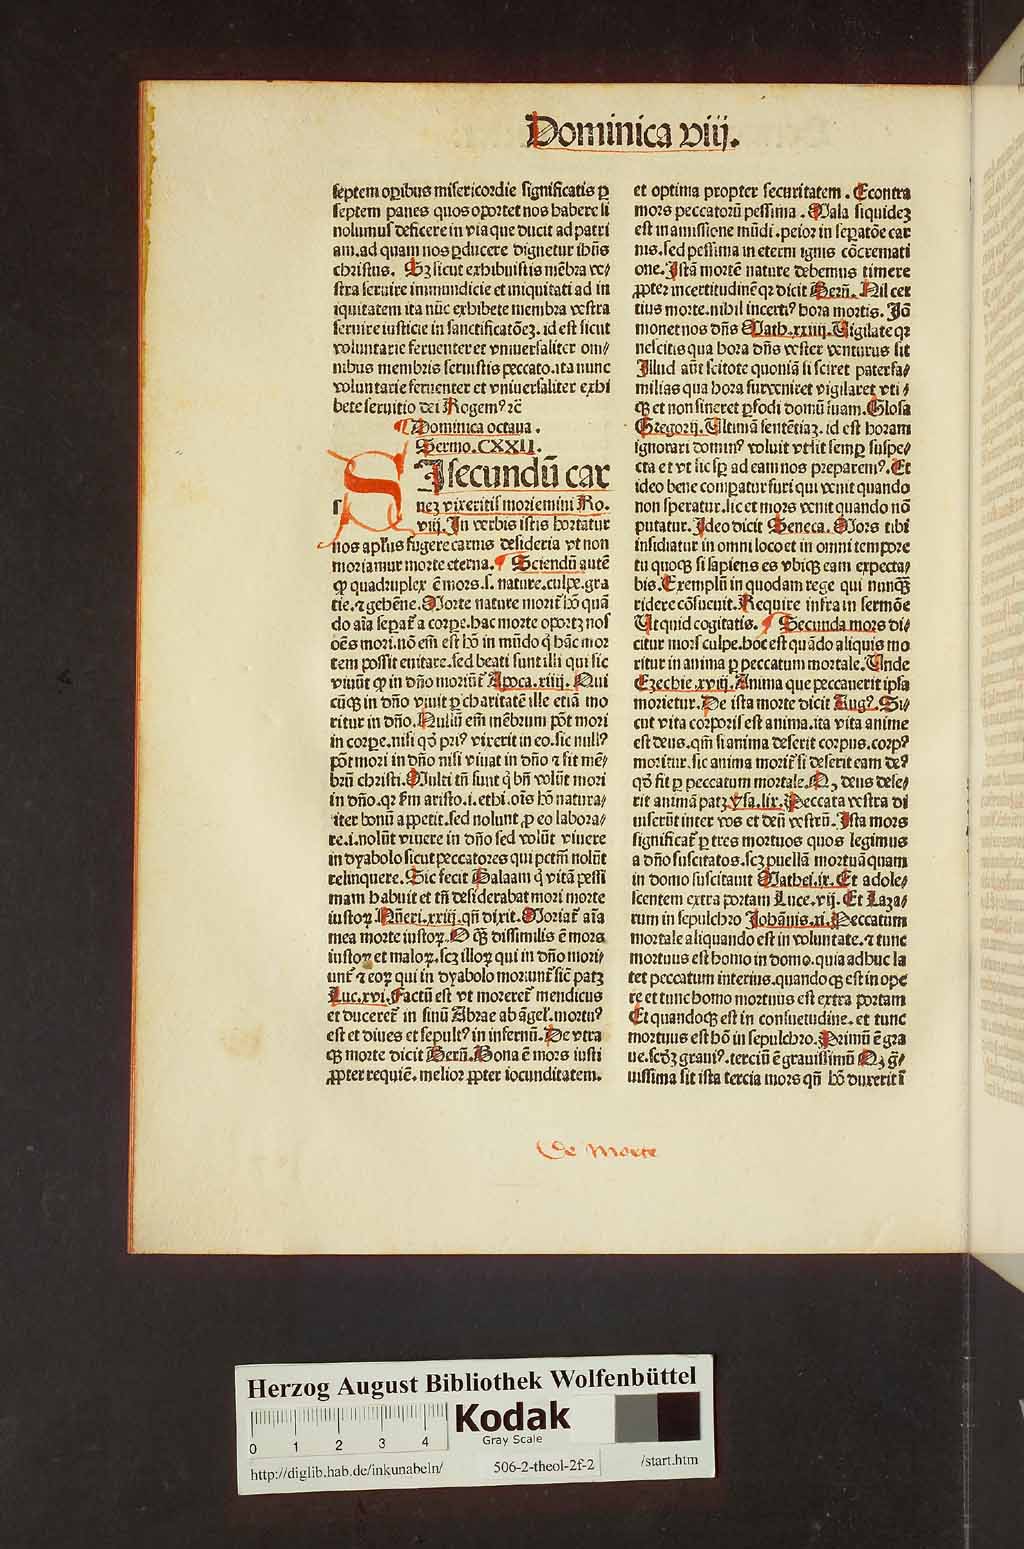 Dominica viij.
septem operibus misericordie significatis ꝑ
septem panes quos oportet nos habere si
nolumus deficere in via que ducit ad patri
am. ad quam nos ꝑducere dignetur ihūs
christus. Sꝫ sicut exhibuistis mēbra ve⸗
stra seruire immundicie et iniquitati ad in
iquitatem ita nūc exhibete membra vestra
seruire iusticie in sanctificatōeꝫ. id est sicut
voluntarie feruenter et vniuersaliter om⸗
nibus membris seruistis peccato. ita nunc
voluntarie feruenter et vniuersaliter exhi
bete seruitio dei Rogemꝰ ꝛc̄
¶ Dominica octaua.
Sermo. CXXII.
SI secundū car
neꝫ vixeritis moriemini Ro.
viij. In verbis istis hortatur
nos apl̄us fugere carnis desideria vt non
moriamur morte eterna. ¶ Sciendū autē
ꝙ quadruplex ē mors. s. nature. culpe. gra
tie. ⁊ gehēne. Morte nature morit̄ hō quā
do aīa seꝑat̄ a corpe. hac morte oportꝫ nos
oēs mori. nō em̄ est hō in mūdo q̇ hāc mor
tem possit euitare. sed beati sunt illi qui sic
viuūt ꝙ in dn̄o moriunt̄ Apoca. xiiij. Qui
cūqꝫ in dn̄o viuit ꝑ charitatē ille etiā mo
ritur in dn̄o. Nullū em̄ mēbrum pōt mori
in corpe. nisi qꝺ̄ priꝰ vixerit in eo. sic nullꝰ
pōt mori in dn̄o nisi viuat in dn̄o ⁊ sit mē⸗
brū christi. Multi tn̄ sunt q̇ bn̄ volūt mori
in dn̄o. qꝛ ẜm aristo. i. ethi. oīs hō natura⸗
liter bonū appetit. sed nolunt ꝓ eo labora⸗
re. i. nolūt viuere in dn̄o sed volūt viuere
in dyabolo sicut peccatores qui pctm̄ nolūt
relinquere. Sic fecit Balaam q̇ vitā pessi
mam habuit et tn̄ desiderabat mori morte
iustoꝝ Nūeri. xxiij. qn̄ dixit. Moriat̄ aīa
mea morte iustoꝝ. O qꝫ̄ dissimilis ē mors
iustoꝝ et maloꝝ. scꝫ illoꝝ qui in dn̄o mori⸗
unt̄ ⁊ eoꝝ qui in dyabolo moriunt̄ sic̄ patꝫ
Luc. xvi. Factū est vt moreret̄ mendicus
et duceret̄ in sinū Abrae ab āgel̄. mortuꝰ
est et diues et sepultꝰ in infernū. De vtra
qꝫ morte dicit Berñ. Bona ē mors iusti
ꝓpter requiē. melior ꝓpter iocunditatem.
et optima propter securitatem. Econtra
mors peccatorū pessima. Mala siquideꝫ
est in amissione mūdi. peior in seꝑatōe car
nis. sed pessima in eterni ignis cōcremati
one. Istā mortē nature debemus timere
ꝓpter incertitudinē qꝛ dicit Berñ. Nil cer
tius morte. nihil incertiꝰ hora mortis. Iō
monet nos dn̄s Math. xxiiij. Vigilate qꝛ
nescitis qua hora dn̄s vester venturus sit
Illud aūt scitote quoniā si sciret paterfa⸗
milias qua hora fur veniret vigilaret vti⸗
qꝫ et non sineret ꝑfodi domū suam. Glosa
Gregorij. Vltimā sentētiaꝫ. id est horam
ignorari dominꝰ voluit vt sit semꝑ suspe⸗
cta et vt sic sꝑ ad eam nos preparemꝰ. Et
ideo bene comparatur furi qui venit quando
non speratur. sic et mors venit quando nō
putatur. Ideo dicit Seneca. Mors tibi
insidiatur in omni loco et in omni tempore
tu quoqꝫ si sapiens es vbiqꝫ eam expecta⸗
bis. Exemplū in quodam rege qui nunqꝫ̄
ridere cōsueuit. Require infra in sermōe
Vt quid cogitatis. ¶ Secunda mors di⸗
citur mors culpe. hoc est quādo aliquis mo
ritur in anima ꝑ peccatum mortale. Unde
Ezechie. xviij. Anima que peccauerit ipsa
morietur. De ista morte dicit Augꝰ. Si⸗
cut vita corporis est anima. ita vita anime
est deus. qm̄ si anima deserit corpus. corpꝰ
moritur. sic anima morit̄ si deserit eam deꝰ
qꝺ̄ fit ꝑ peccatum mortale. Q, deus dese⸗
rit animā patꝫ ysa. lix. Peccata vestra di
uiserūt inter vos et deū vestrū. Ista mors
significat̄ ꝑ tres mortuos quos legimus
a dn̄o suscitatos. scꝫ puellā mortuā quam
in domo suscitauit Mathei. ix. Et adole⸗
scentem extra portam Luce. vij. Et Laza⸗
rum in sepulchro Johānis. xi. Peccatum
mortale aliquando est in voluntate. ⁊ tunc
mortuus est homo in domo. quia adhuc la
tet peccatum interius. quandoqꝫ est in ope
re et tunc homo mortuus est extra portam
Et quandoqꝫ est in consuetudine. et tunc
mortuus est hō in sepulchro. Primū ē gra
ue. scꝺ̄ꝫ grauiꝰ. terciū ē grauissimū Q, gᷓ⸗
uissima sit ista tercia mors qn̄ hō duxerit ī
De Morte
Herzog August Bibliothek Wolfenbüttel
0 1 2 3 4
Kodak
Gray Scale
http://diglib.hab.de/inkunabeln/ 506-2-theol-2f-2 /start.htm